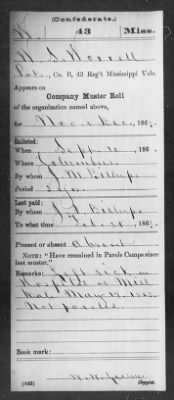 (Confederate.)
W. 43 Miss.
W. S. Worrell
Pvt., Co. B, 43 Reg't Mississippi Vols.
Appears on
Company Muster Roll
of the organization named above,
for Nov. & Dec., 186
Enlisted:
When Sept. 10, 186
Where Columbus
By whom J. M. Billups
Period
Last paid:
By whom Billups
To what time 186
Present or absent Absent
NOTE: "Have remained in Parole Camps since
last muster."
Remarks: Left sick in
Hospital at Mill
Dale May 17,
Not paroled
Book mark:
(642) Copyist.